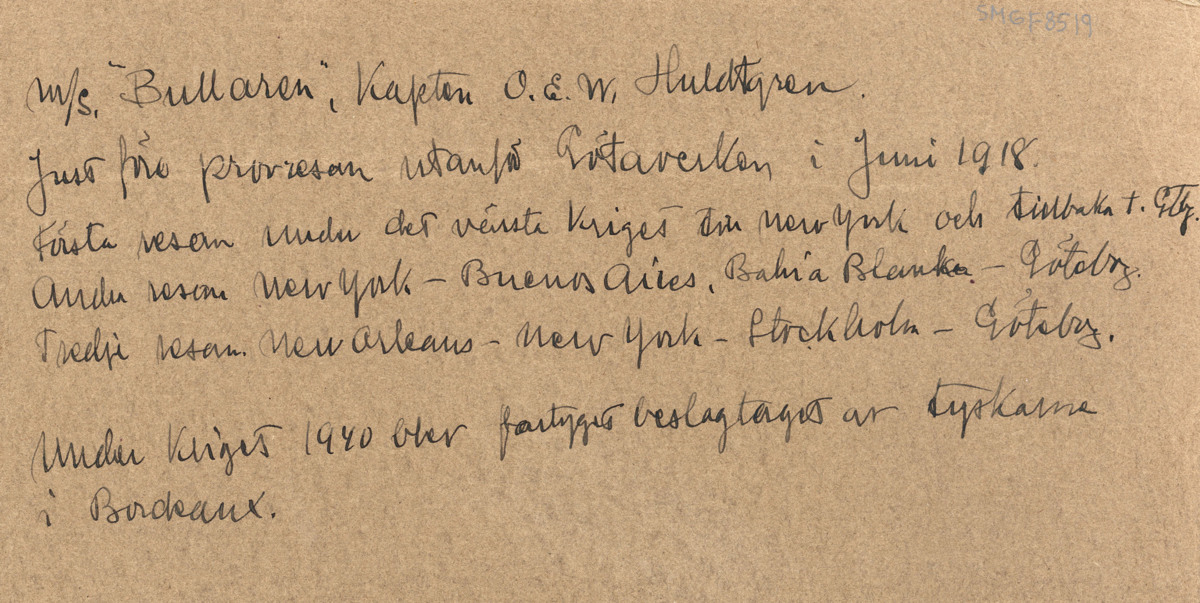 SMGF8519
m/s, "Bullaren", Kapten O.E.W. Huldtgren.
Just före provresan utanför Götaverken i Juni 1918.
Första resan under det värsta Kriget till New York och tillbaka t. Gtbg.
Andra resan New York – Buenos Aires, Bahia Blanka – Göteborg.
Tredje resan. New Orleans – New York – Stockholm – Göteborg.
Under Kriget 1940 blev fartyget beslagtaget av tyskarna
i Bordeaux.